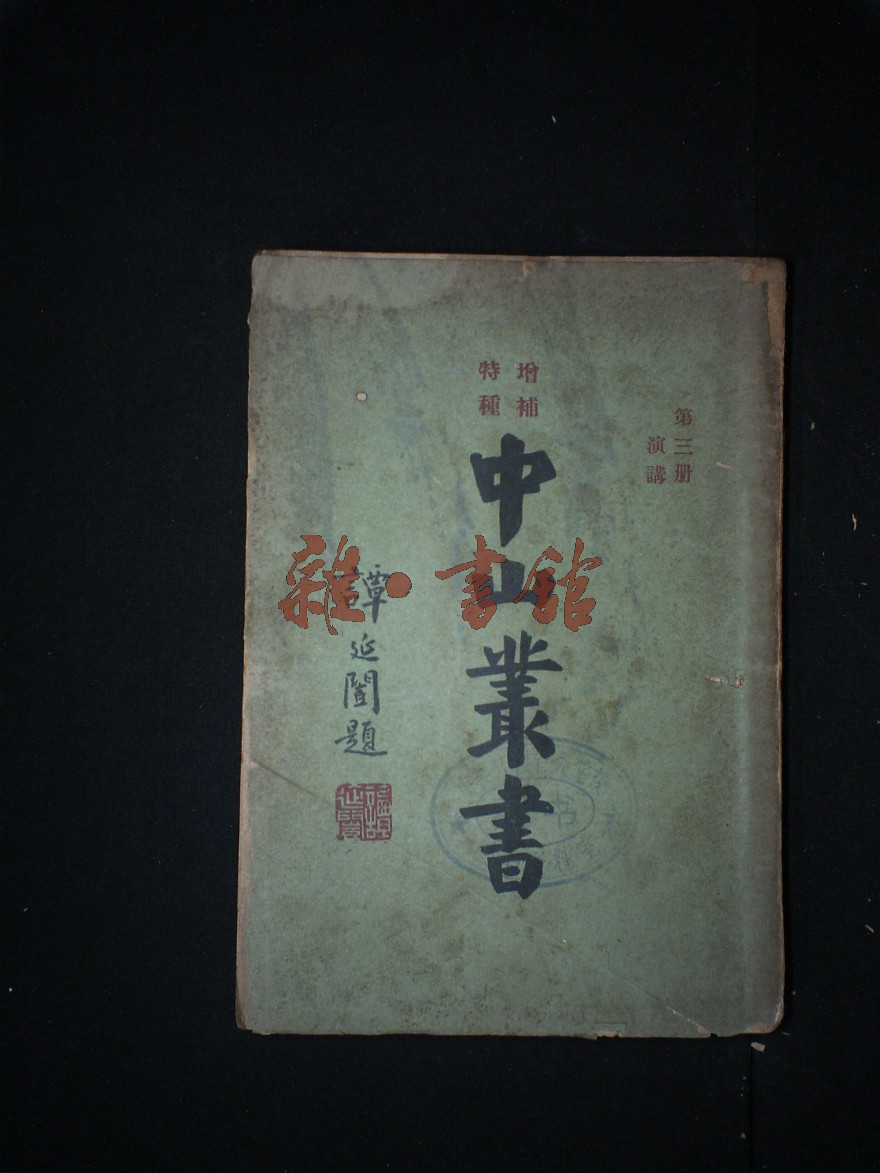 第三册
演講
增補
特種
中山叢書
譚延闓題
雜·書館